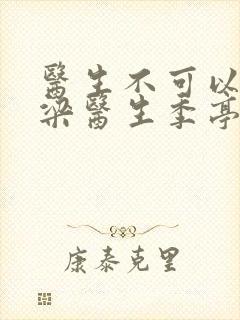 醫生不可以
梁醫生季亭
康泰克里